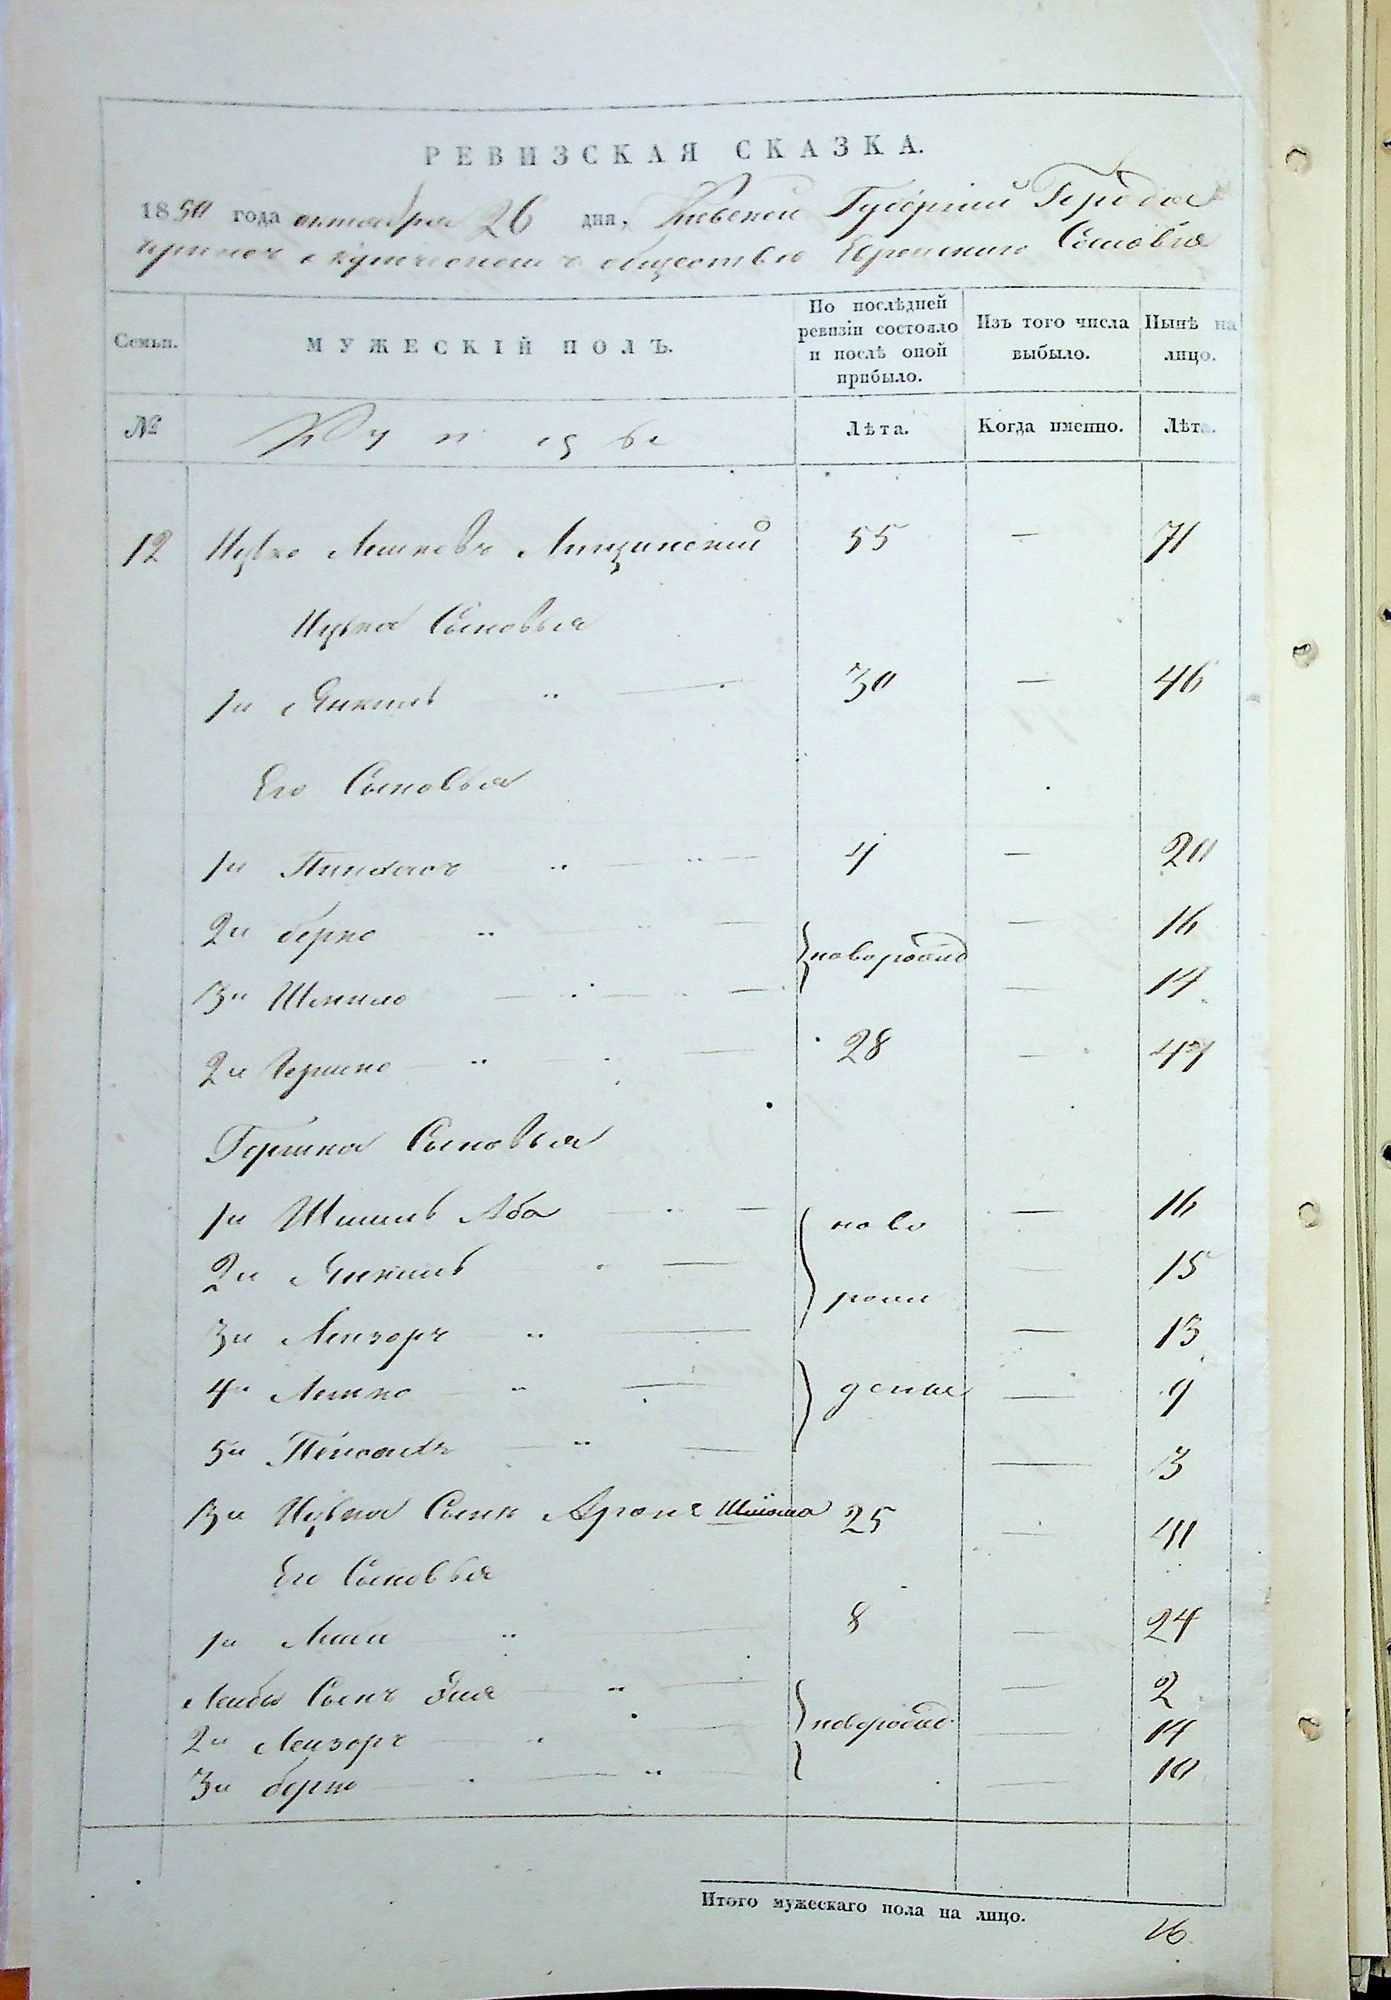 РЕВИЗСКАЯ СКАЗКА.
1850 года октября 26 дня, Киевской Губерніи Города
о купеческомъ обществѣ Еврейскаго Сословія
Семьи. МУЖЕСКІЙ ПОЛЪ. По послѣдней ревизіи состояло и послѣ оной прибыло. Изъ того числа выбыло. Нынѣ на лицо.
№ Купцы Лѣта. Когда именно. Лѣта.
12 Ицко Лейковъ 55 — 71
Ицка Сыновья
1й Янкель 30 — 46
Его Сыновья
1й Пинхасъ 4 — 20
2й Берко — 16
новорожд
3й Шмило — 14
2й Гершко 28 — 44
Гершка Сыновья
1й Аба ново — 16
2й Янкель — 15
рож
3й Лейзоръ — 13
4й Лейко деные — 9
5й — 3
3й Ицка Сынъ Аронъ Шлиома 25 — 41
Его Сыновья
1й Лейба 8 — 24
Лейбы Сынъ — 2
новорожд.
2й Лейзоръ — 14
3й Берко — 10
Итого мужескаго пола на лицо. 16